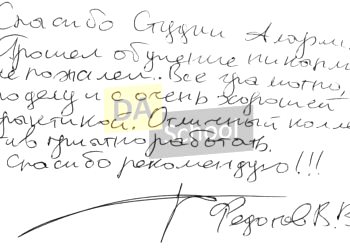 Спасибо Студии Аларм
Прошел обучение ни капли
не пожалел.. Все грамотно,
по делу и с очень хорошей
практикой. Отличный колле
тив приятно работать.
Спасибо рекомендую!!!
DA
School
Федотов В.В